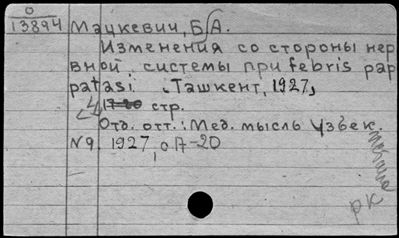 0
13894 Мацкевич, Б.А.
Изменения со стороны нер
вной системы при febris pap
patasi. Ташкент, 1927,
4 стр.
Отд. отт.: Мед. мысль Узбек.
N9, 1927, с.17-20
РК